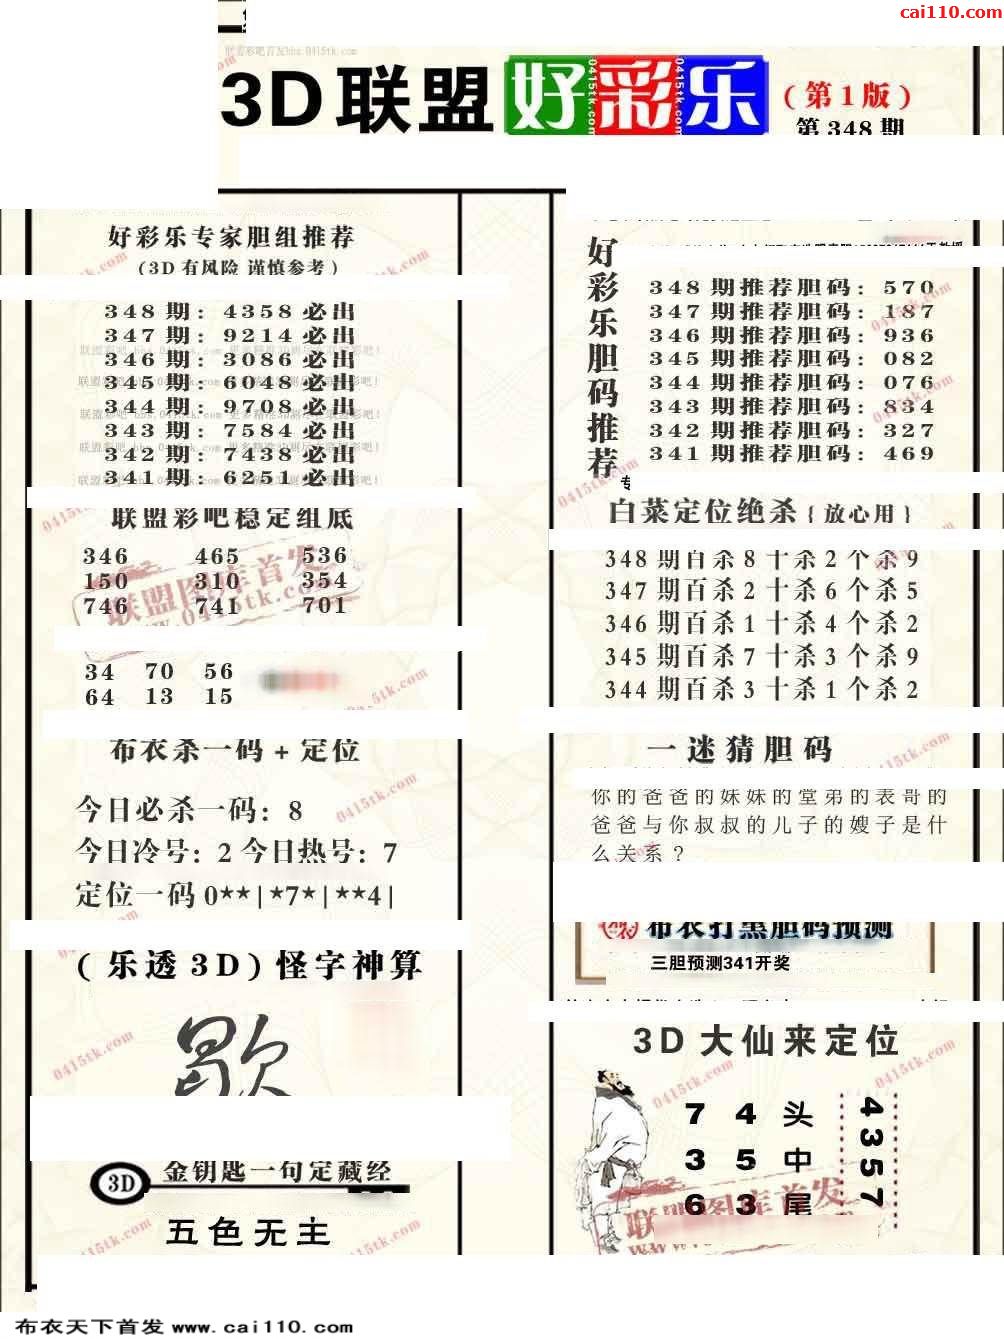 cai110.com
3D联盟 好彩乐 (第1版)
第348期
好彩乐专家胆组推荐
(3D有风险 谨慎参考)
348期: 4358必出
347期: 9214必出
346期: 3086必出
345期: 6048必出
344期: 9708必出
343期: 7584必出
342期: 7438必出
341期: 6251必出
联盟彩吧稳定组底
346 465 536
150 310 354
746 741 701
34 70 56
64 13 15
布衣杀一码+定位
今日必杀一码: 8
今日冷号: 2 今日热号: 7
定位一码 0**|*7*|**4|
(乐透3D)怪字神算
3D 金钥匙一句定藏经
五色无主
好彩乐胆码推荐
348期推荐胆码: 570
347期推荐胆码: 187
346期推荐胆码: 936
345期推荐胆码: 082
344期推荐胆码: 076
343期推荐胆码: 834
342期推荐胆码: 327
341期推荐胆码: 469
白菜定位绝杀{放心用}
348期百杀8十杀2个杀9
347期百杀2十杀6个杀5
346期百杀1十杀4个杀2
345期百杀7十杀3个杀9
344期百杀3十杀1个杀2
一迷猜胆码
你的爸爸的妹妹的堂弟的表哥的
爸爸与你叔叔的儿子的嫂子是什
么关系？
布衣打黑胆码预测
三胆预测341开奖
3D大仙来定位
7 4 头
3 5 中
6 3 尾
4357
联盟图库首发
www.0415tk.com
布衣天下首发 www.cai110.com